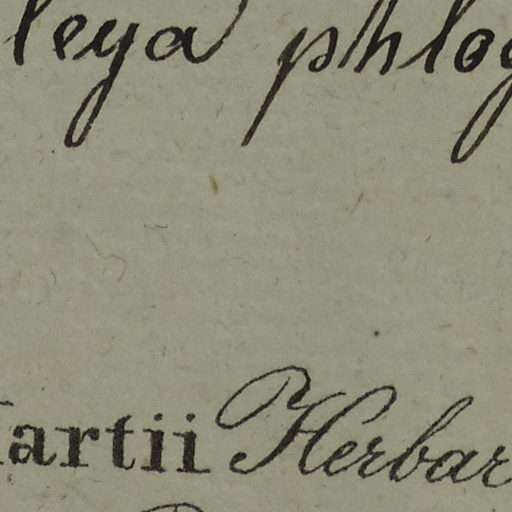 leya phlog
artii Herbar